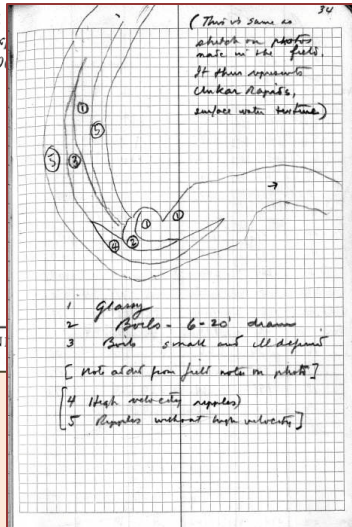 34
(This is same as
sketch on photos
made in the field.
It thus represents
Unkar Rapids,
surface water texture)
1
5
5
3
1
1
4
2
1 Glassy
2 Boils - 6-20' diam
3 Boils small and ill defined
[Not added from field notes on photo]
[4 High velocity ripples)
5 Ripples without high velocity]